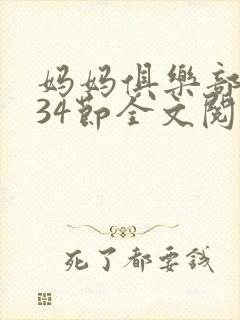 妈妈俱樂部
34節全文閱
死了都要錢